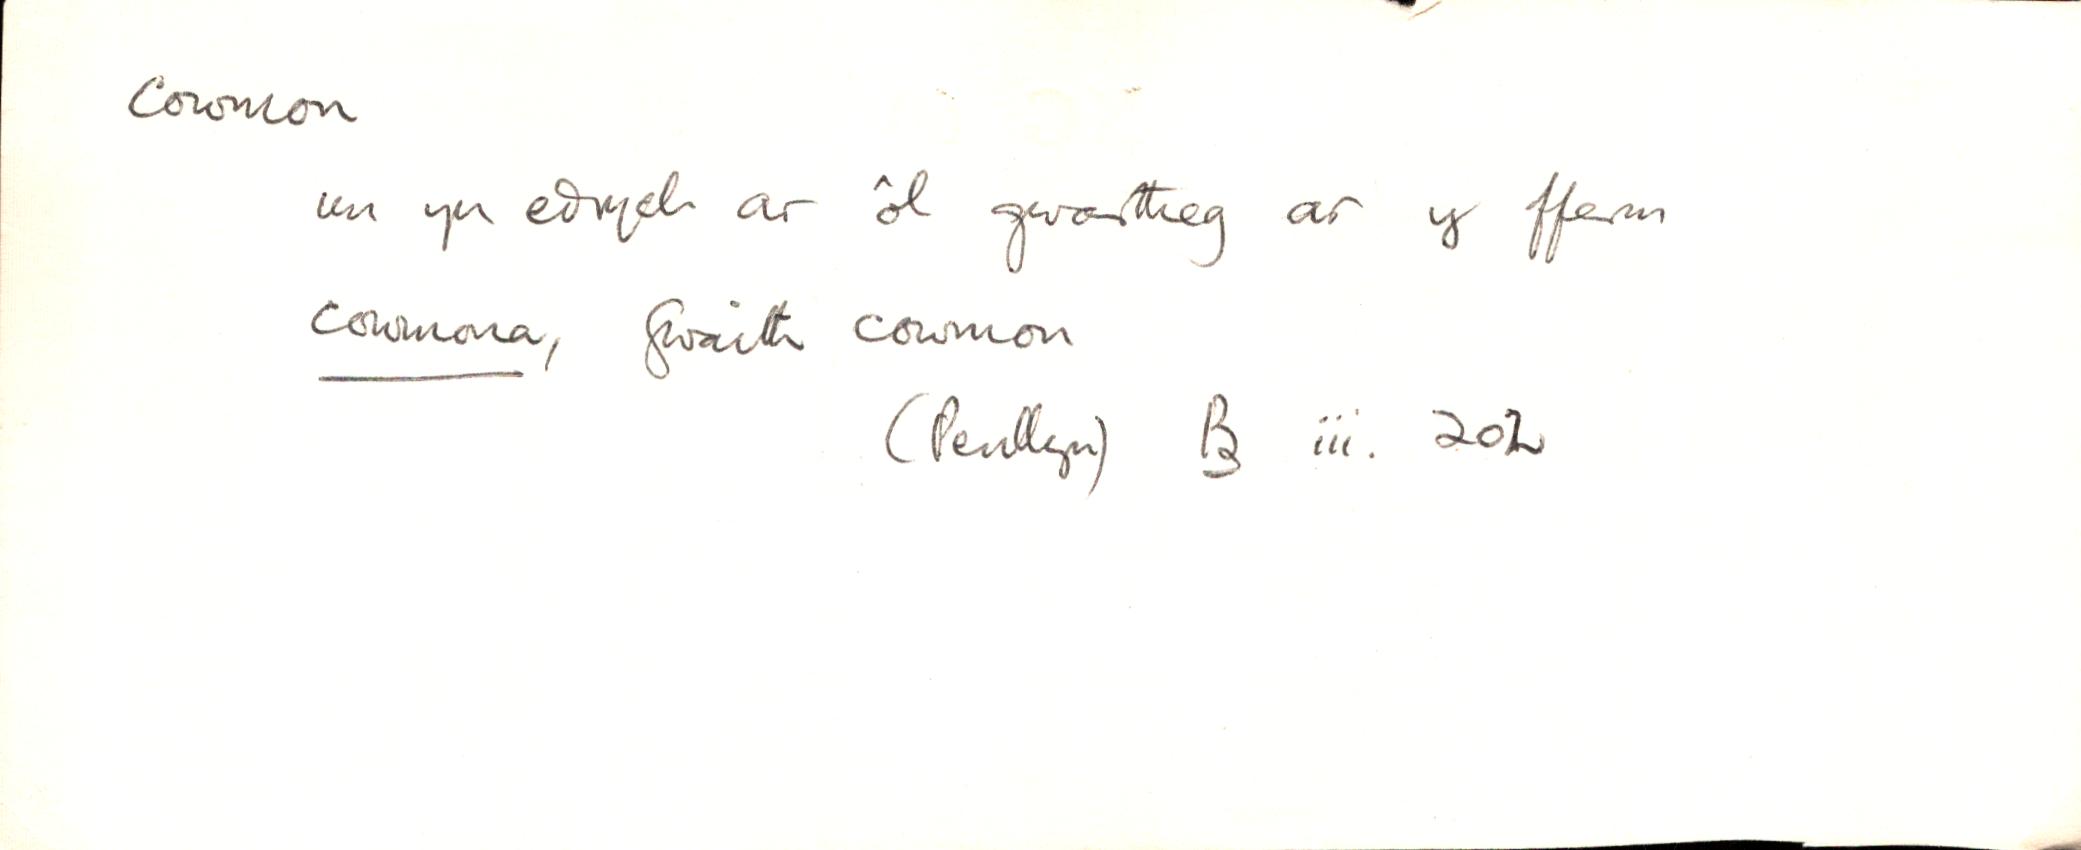 Cowmon
un yn edrych ar ôl gwartheg ar y fferm
cowmona, gwaith cowmon
(Penllyn) B iii. 202